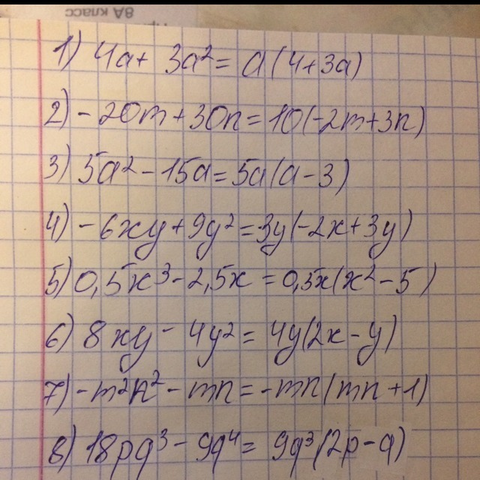 8А класс
1) 4a + 3a² = a(4+3a)
2) -20m + 30n = 10(-2m+3n)
3) 5a² - 15a = 5a(a-3)
4) -6xy + 9y² = 3y(-2x+3y)
5) 0,5x³ - 2,5x = 0,5x(x²-5)
6) 8xy - 4y² = 4y(2x-y)
7) -m²n² - mn = -mn(mn+1)
8) 18pq³ - 9q⁴ = 9q³(2p-q)